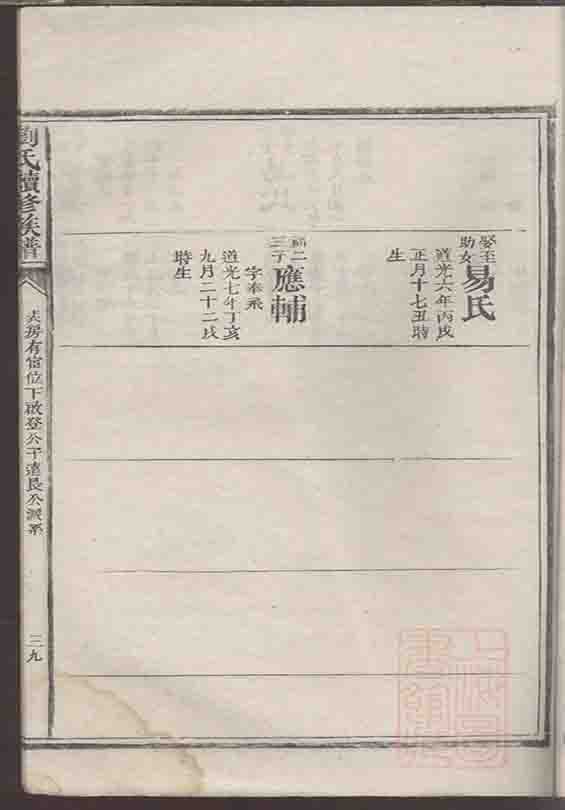 娶至
助女
易氏
道光六年丙戌
正月十七丑時
生
嗣二
三子
應輔
字奉丞
道光七年丁亥
九月二十二戌
時生
劉氏續修族譜
房有富位下啟登公子遠長公派系
三九